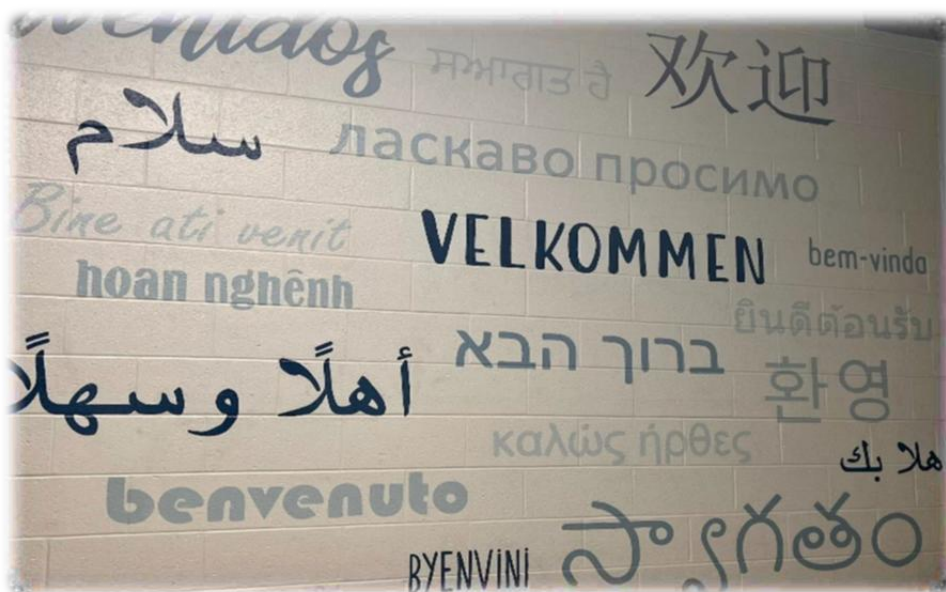 venidos
ਸਆਗਤ ਹੈ
欢迎
سلام
ласкаво просимо
Bine ati venit
VELKOMMEN
bem-vinda
hoan nghênh
ยินดีต้อนรับ
أهلًا و سهلًا
ברוך הבא
환영
καλώς ήρθες
هلا بك
benvenuto
BYENVINI
స్వాగతం